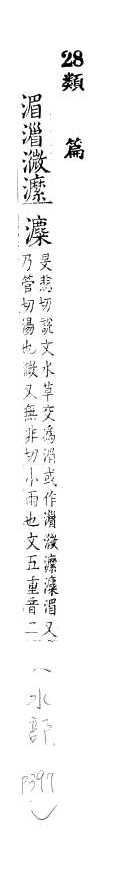 28類篇
湄湽溦濹㵟
旻悲切說文水草交爲湄或作湽溦濹㵟湄又
乃管切湯也溦又無非切小雨也文五重音二
(水部 P397)